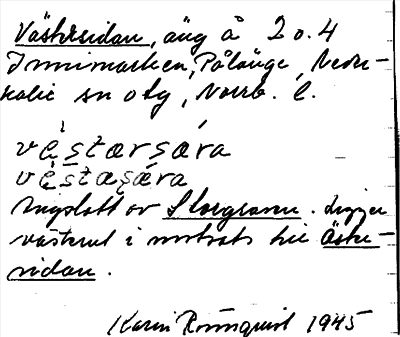 Västersidan, äng å 2 o. 4
Innimarken, Pålänge, Neder-
kalix sn o tg, Norrb. l.
vèstærsǽra
vèstæsǽra
Ängslott av Storgraven. Ligger
västerut i motsats till Öster-
sidan.
Karin Rönnquist 1945